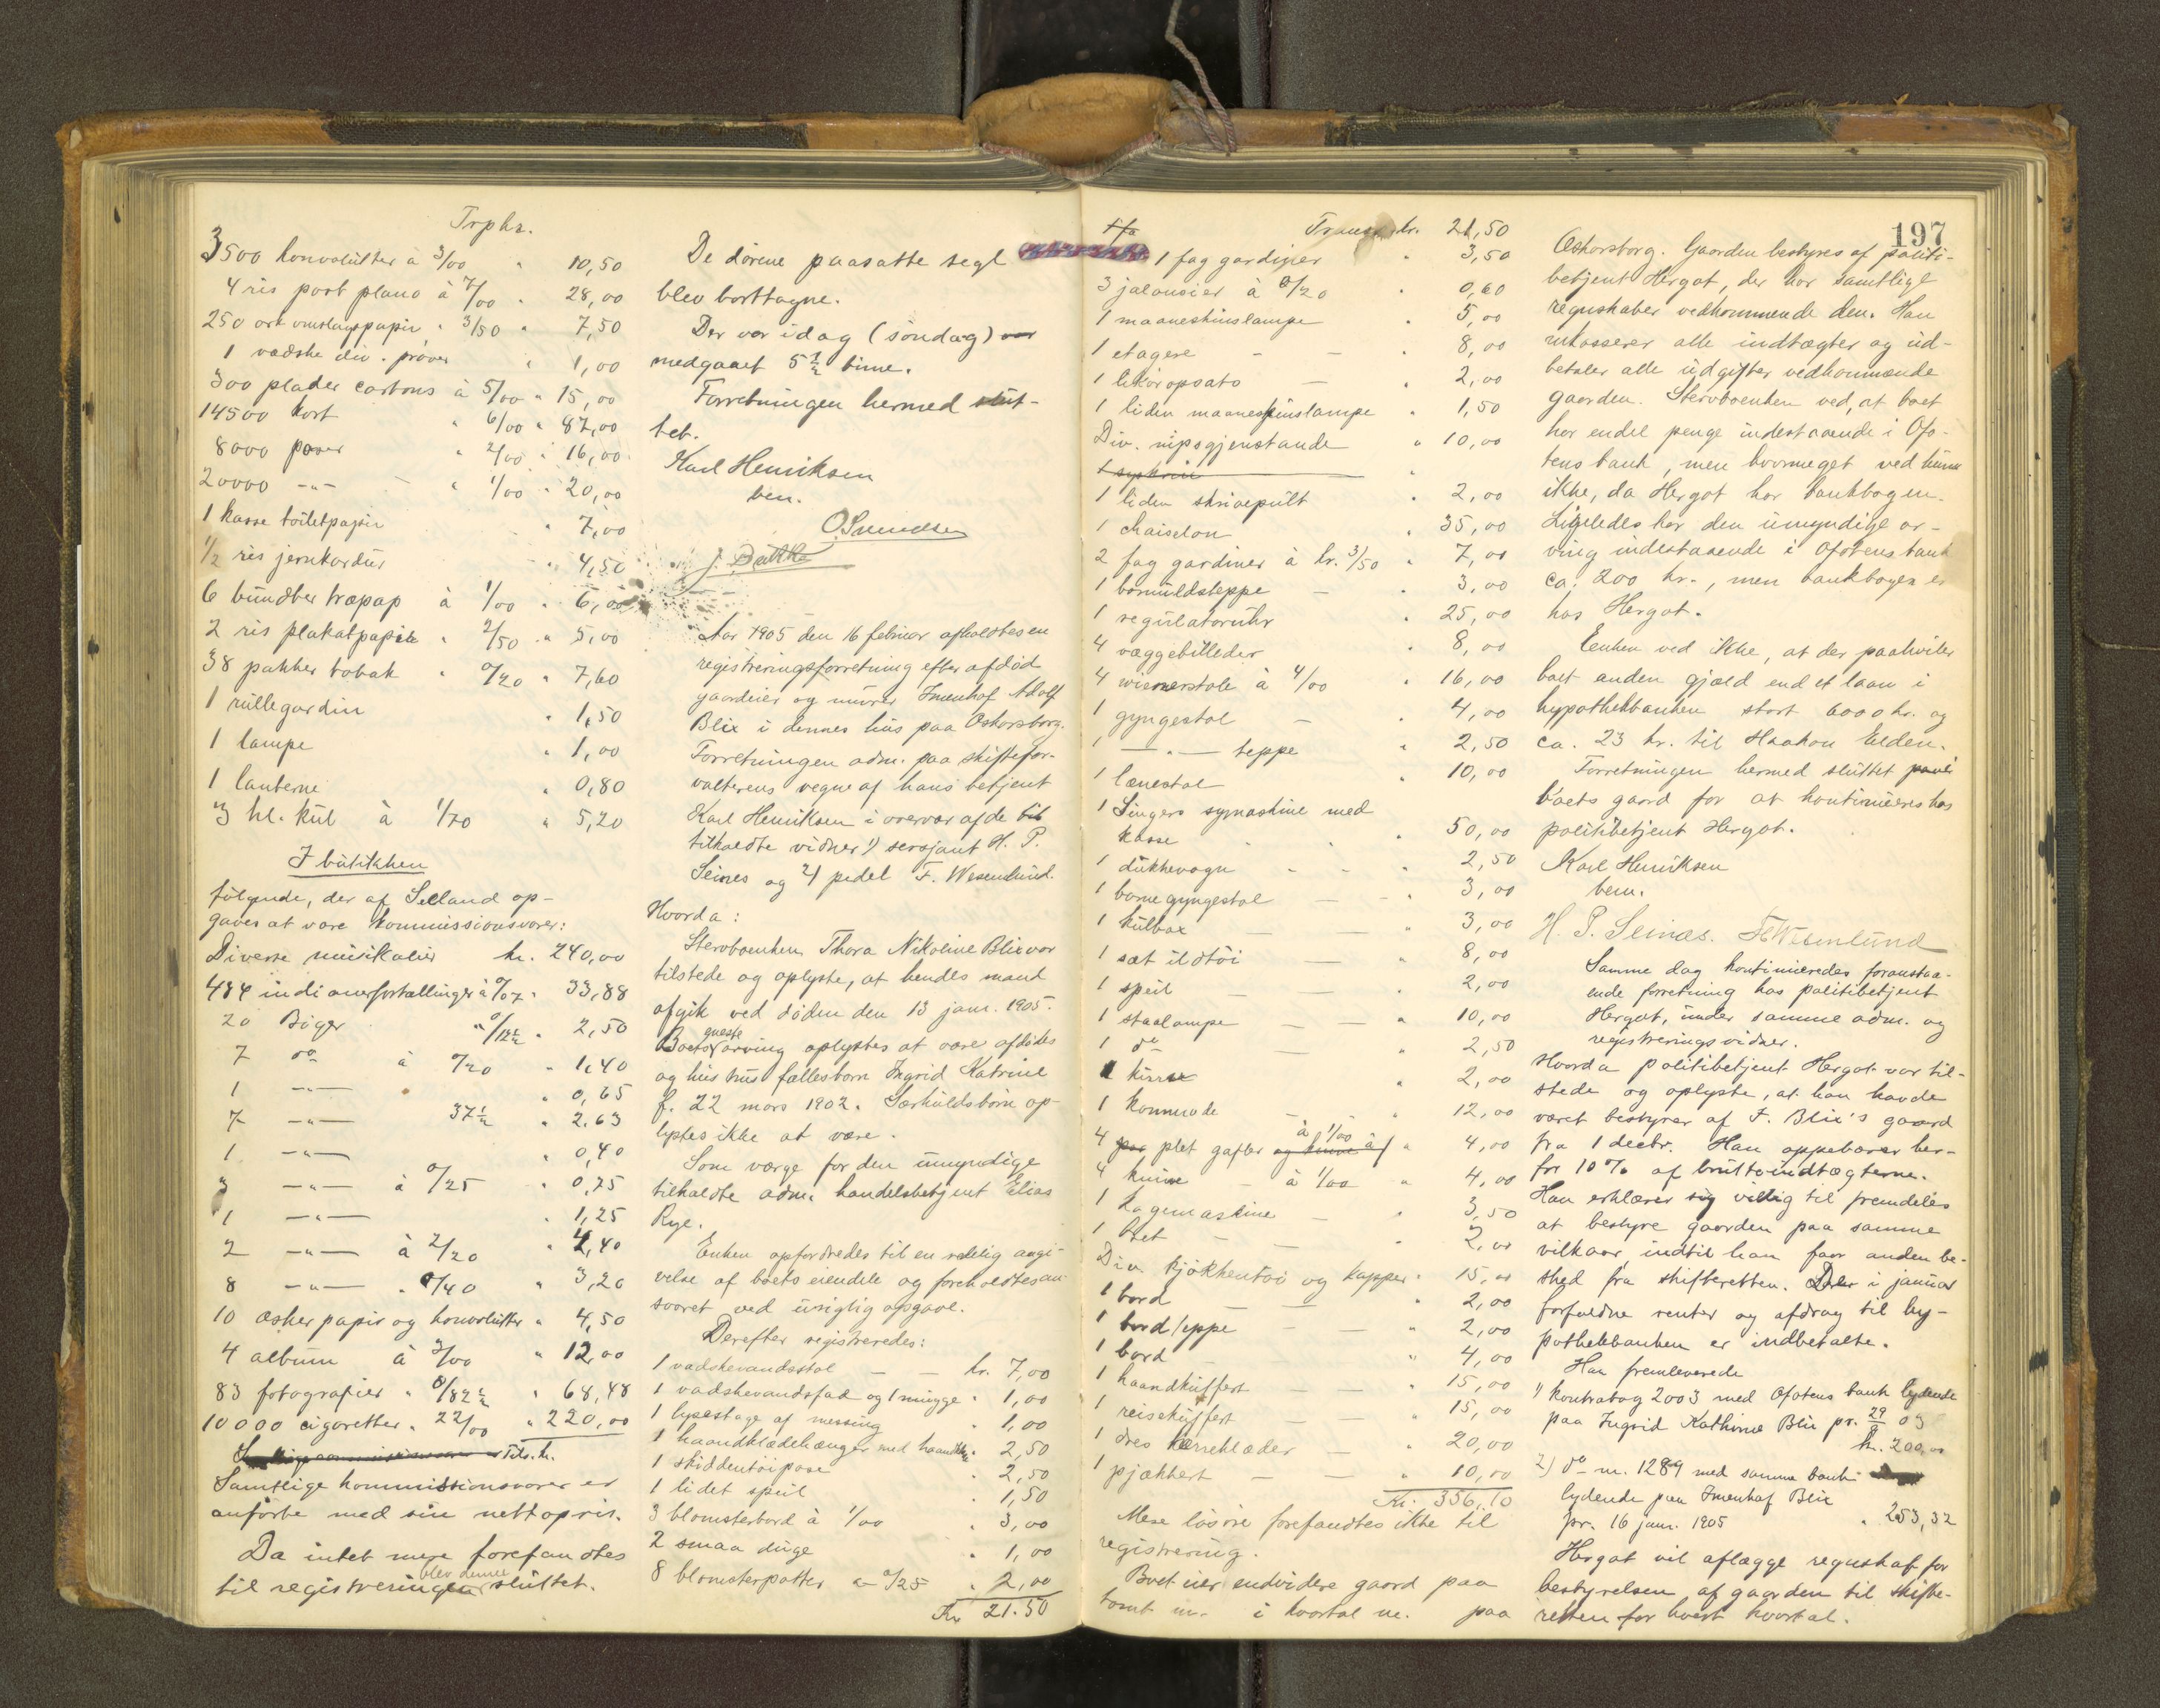 Trpkr.
3500 konvolutter à 3/00 " 10,50
4 ris post plano à 7/00 " 28,00
250 ark omslagspapir " 3/50 " 7,50
1 vædske div. prøver " 1,00
300 plader cartons à 5/00 " 15,00
14500 kort " 6/00 " 87,00
8000 poser " 2/00 " 16,00
20000 -"- " 1/00 " 20,00
1 kasse toiletpapir " 7,00
1/2 ris jernkardus " 4,50
6 bundter træpap à 1/00 " 6,00
2 ris plakatpapir " 2/50 " 5,00
38 pakker tobak " 0/20 " 7,60
1 rullegardin " 1,50
1 lampe " 1,00
1 lanterne " 0,80
3 hl. kul à 1/70 " 5,20
I butikken
følgende, der af Selland op-
gaves at være kommissionsvarer:
Diverse musikalier kr. 240,00
484 indianerfortællinger à 0/07 " 33,88
20 Bøger " 0/12½ " 2,50
7 do à 0/20 " 1,40
1 -"- " 0,65
7 -"- 37½ " 2.63
1 -"- " 0,40
3 -"- à 0/25 " 0,75
1 -"- " 1,25
2 -"- à 2/20 " 4,40
8 -"- " 0/40 " 3,20
10 æsker papir og konvolutter " 4,50
4 album à 3/00 " 12,00
83 fotografier " 0/82½ " 68,48
10000 cigaretter " 22/00 " 220,00
Tils. kr.
Samtlige kommissionsvarer er
anførte med sin nettopris.
Da intet mere forefandtes
til registreringen blev denne sluttet.
De dørene paasatte segl
blev borttagne.
Der var idag (søndag)
medgaaet 5½ time.
Forretningen hermed slut-
tet.
Karl Henriksen
bem.
O. Svendsen
Aar 1905 den 16 februar afholdtes en
registreringsforretning efter afdød
gaardeier og murer Imenhof Adolf
Blix i dennes hus paa Oskarsborg.
Forretningen adm. paa skiftefor-
valterens vegne af hans betjent
Karl Henriksen i overvær af de til
tilkaldte vidner 1) sersjant H. P.
Seines og 2) pedel F. Wesenlund.
Hvorda:
Stervboenken Thora Nikoline Blix var
tilstede og oplyste, at hendes mand
afgik ved døden den 13 janr. 1905.
Boets eneste arving oplystes at være afdødes
og hustrus fællesbarn Ingrid Katrine
f. 22 mars 1902. Særkuldsbørn op-
lystes ikke at være.
Som værge for den umyndige
tilkaldte adm. handelsbetjent Elias
Rye.
Enken opfordredes til en redelig angi-
velse af boets eiendele og foreholdtes an-
svaret ved urigtig opgave.
Derefter registreredes:
1 vadskevandsstol — — kr. 7,00
1 vadskevandsfad og 1 mugge " 1,00
1 lysestage af messing " 1,00
1 haandklædehænger med haandkl. " 2,50
1 skiddentøipose " 2,50
1 lidet speil " 1,50
3 blomsterbord à 1/00 " 3,00
2 smaa duge " 1,00
8 blomsterpotter à 0/25 " 2,00
Kr 21.50
197
Transp. kr. 21,50
1 fag gardiner " 3,50
3 jalousier à 0/20 " 0,60
1 maaneskinslampe " 5,00
1 etagere — — " 8,00
1 likøropsats — " 2,00
1 liden maaneskinslampe " 1,50
Div. nipsgjenstande " 10,00
1 syskrin
1 liden skrivepult " 2,00
1 chaiselon " 35,00
2 fag gardiner à kr. 3/50 " 7,00
1 bomuldsteppe — " 3,00
1 regulatoruhr " 25,00
4 væggebilleder " 8,00
4 wienerstole à 4/00 " 16,00
1 gyngestol — " 4,00
1 —"— teppe " 2,50
1 lænestol " 10,00
1 Singers symaskine med
kasse " 50,00
1 dukkevogn " 2,50
1 barnegyngestol — " 3,00
1 kulbox — — " 3,00
1 sæt ildtøi — " 8,00
1 speil — — " 2,00
1 staalampe — — " 10,00
1 do — " 2,50
1 kurv " 2,00
1 kommode — " 12,00
4 plet gafler à 1/00 " 4,00
4 knive — à 1/00 " 4,00
1 kogemaskine — " 3,50
1 bret — — " 2,00
Div. kjøkkentøi og kopper " 15,00
1 bord — — " 2,00
1 bordteppe — — " 2,00
1 bord — " 4,00
1 haandkuffert — " 15,00
1 reisekuffert — — " 15,00
1 dres herreklæder — " 20,00
1 pjækkert — — " 10,00
Kr. 356,10
Mere løsøre forefandtes ikke til
registrering.
Boet eier endvidere gaard paa
tomt nr. i kvartal nr. paa
Oskarsborg. Gaarden bestyres af politi-
betjent Hergot, der har samtlige
regnskaber vedkommende den. Han
inkasserer alle indtægter og ud-
betaler alle udgifter vedkommende
gaarden. Stervboenken ved, at boet
har endel penge indestaaende i Ofo-
tens bank, men hvormeget ved hun
ikke, da Hergot har bankbogen.
Ligeledes har den umyndige ar-
ving indestaaende i Ofotens bank
ca. 200 kr., men bankbogen er
hos Hergot.
Enken ved ikke, at der paahviler
boet anden gjæld end et laan i
hypothekbanken stort 6000 kr. og
ca. 23 kr. til Haakon Elden.
Forretningen hermed sluttet
boets gaard for at kontinueres hos
politibetjent Hergot.
Karl Henriksen
bem.
H. P. Seines. F. Wesenlund
Samme dag kontinueredes foranstaa-
ende forretning hos politibetjent
Hergot, under samme adm. og
registreringsvidner.
Hvorda politibetjent Hergot var til-
stede og oplyste, at han havde
været bestyrer af I. Blix's gaard
fra 1 decbr. Han oppebærer her-
for 10% af bruttoindtægterne.
Han erklærer sig villig til fremdeles
at bestyre gaarden paa samme
vilkaar, indtil han faar anden be-
sked fra skifteretten. De i januar
forfaldne renter og afdrag til hy-
pothekbanken er indbetalte.
Han fremleverede
1) kontrabog 2003 med Ofotens bank lydende
paa Ingrid Kathrine Blix pr. 29/9 03
kr. 200,00
2) do nr. 1289 med samme bank
lydende paa Imenhof Blix
pr. 16 janr. 1905 " 253,32
Hergot vil aflægge regnskab for
bestyrelsen af gaarden til skifte-
retten for hvert kvartal.